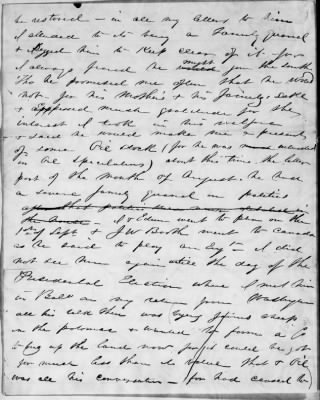 be restored - in all my letters to him
I alluded to its being a Family quarrel
& urged him to Keep clear of it - for
I always feared he might join the South
Tho he promised me often that he would
not for his Mothers & his family's sake
& expressed much gratitude for the
interest I took in his welfare
& said he would make me a present
of some Oil stock (for he was
in Oil speculations) about this time the latter
part of the month of August he had
a severe family quarrel in politics
I & Edwin went to
1st of Sept & J W Booth went to Canada
as he said to play an Engt - I did
not see him again until the day of the
Presidential Election where I met him
in Balt on my return from Washington
all his talk then was buying
on the potomac & wanted to form a Co
to buy up the land now for it could be got
for much less than its value that & Oil
was all his conversation - for had caused to